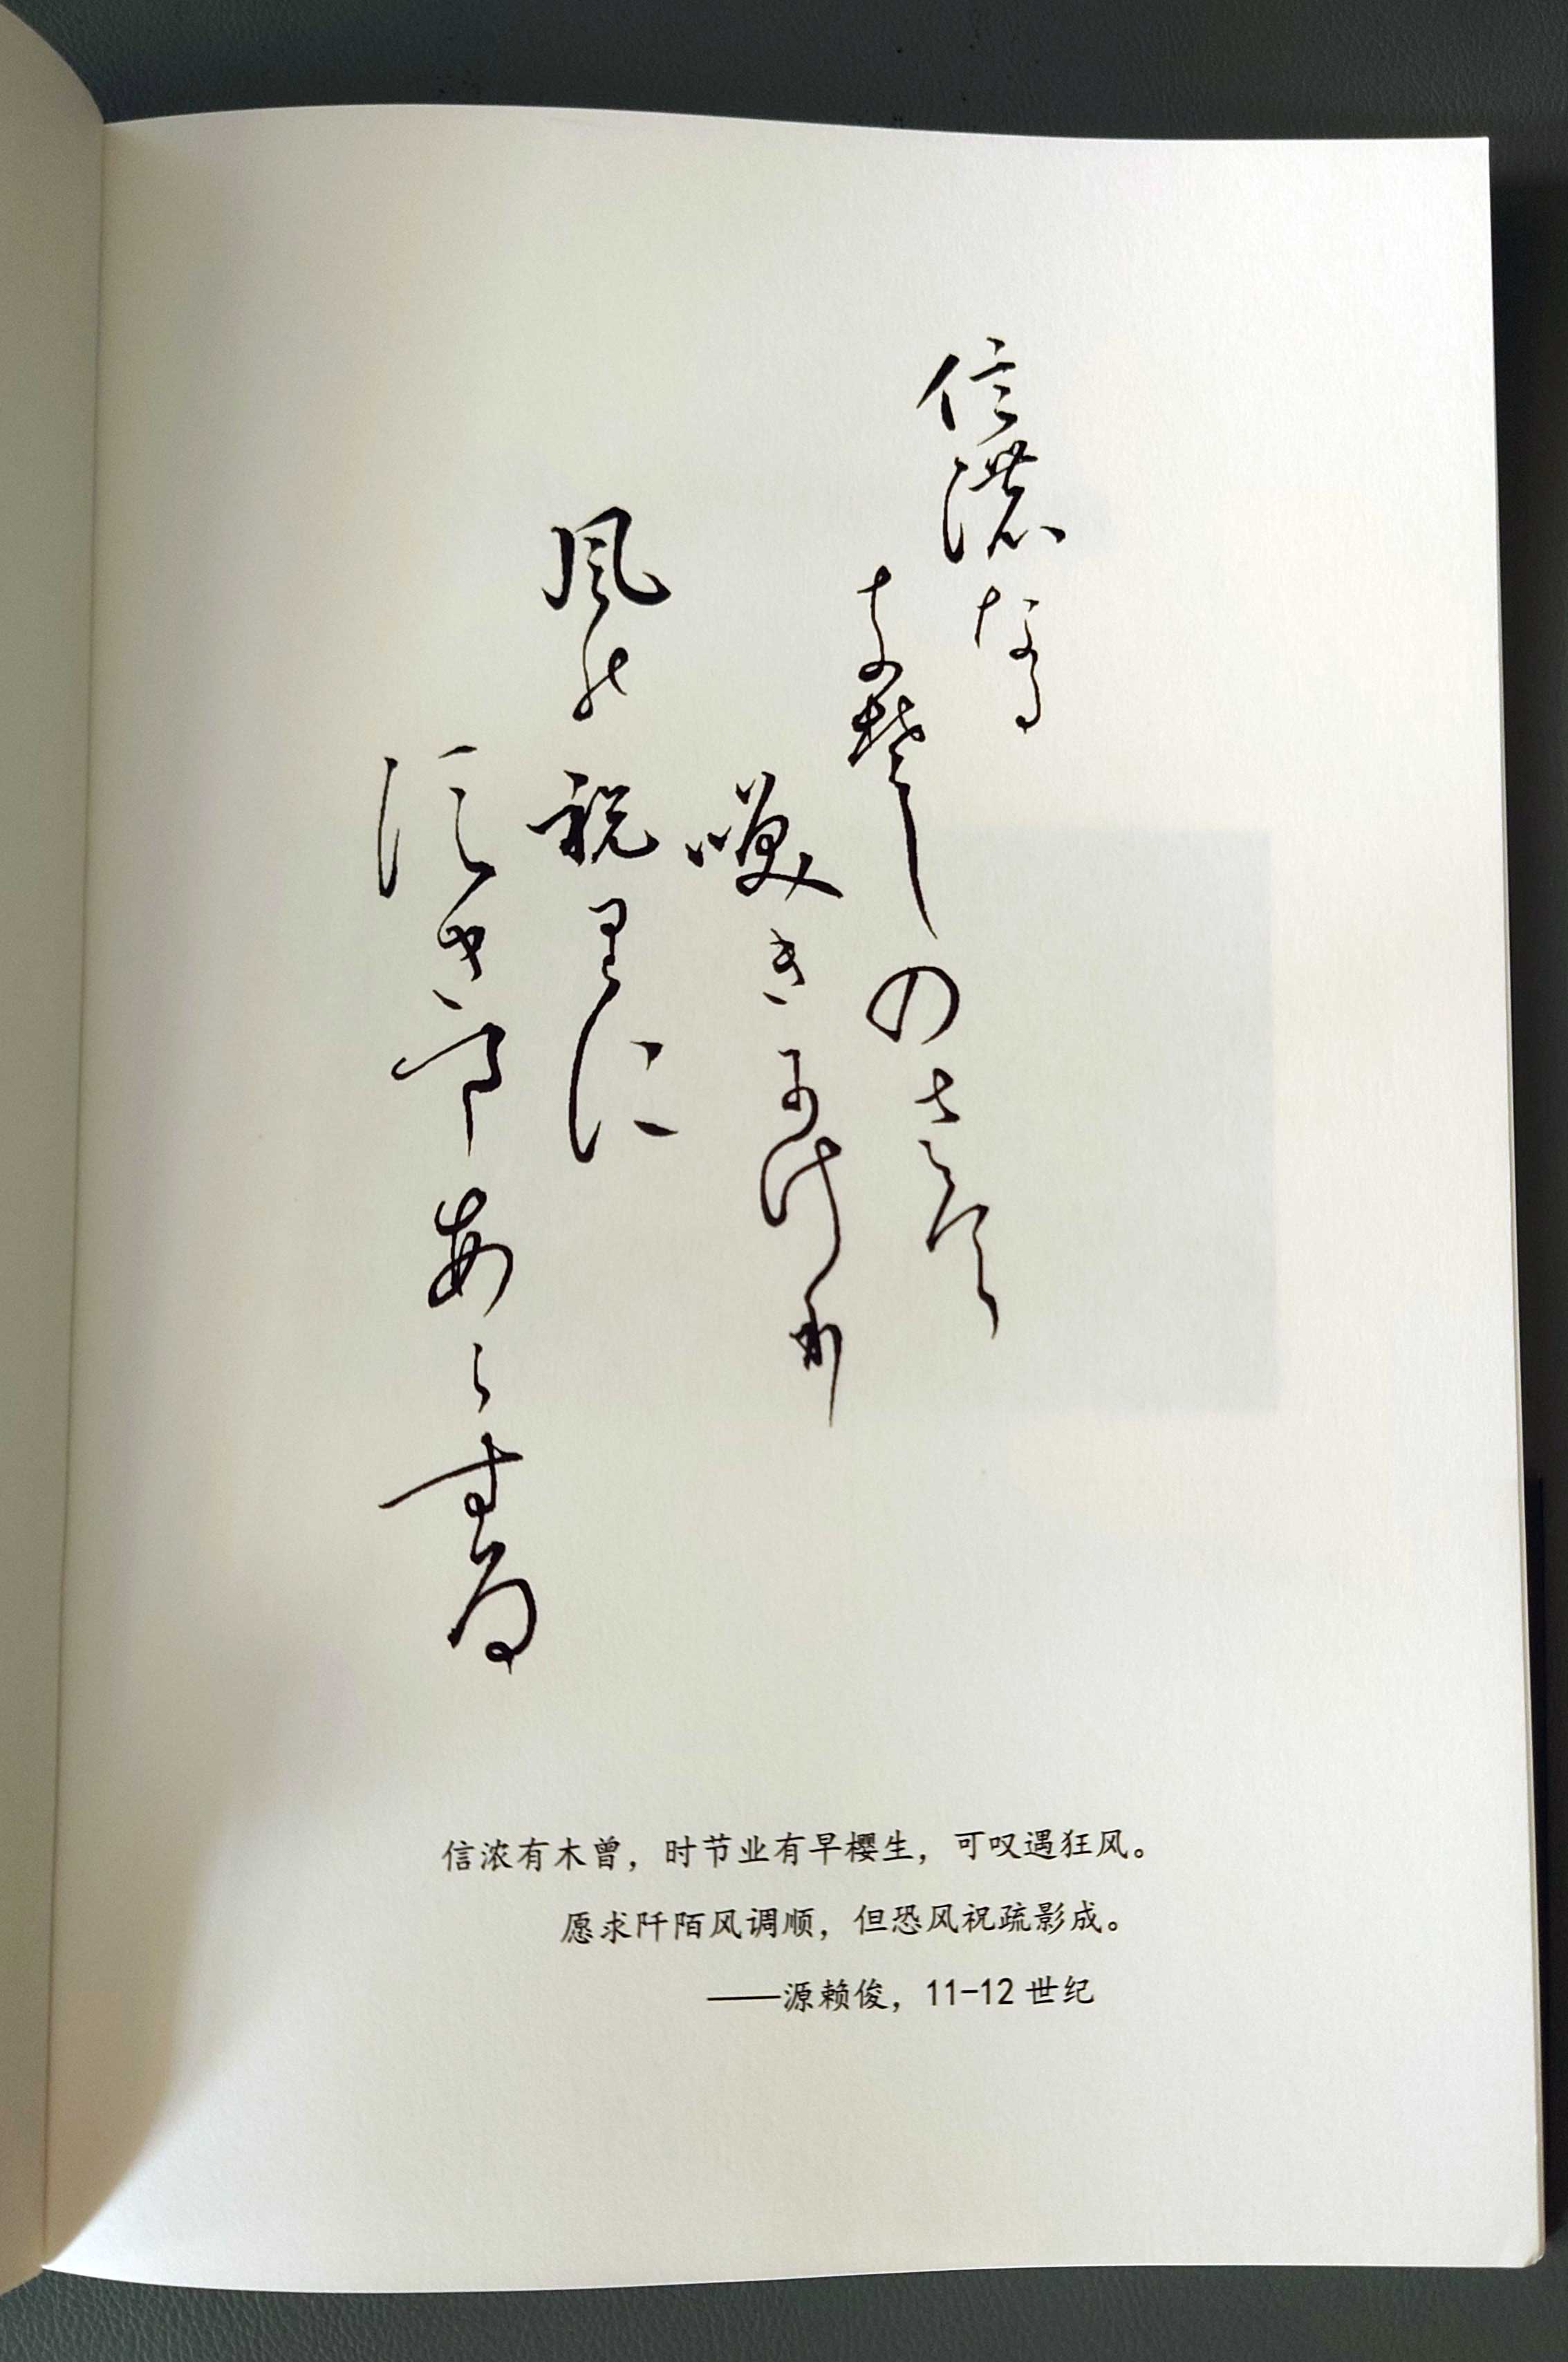 信濃なる
きそしのさくら
咲きにけり
風の祝里に
すきまあらすな
信浓有木曾，时节业有早樱生，可叹遇狂风。
愿求阡陌风调顺，但恐风祝疏影成。
——源赖俊，11-12世纪